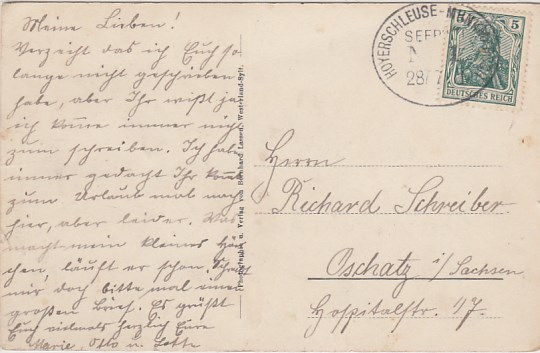 Meine Lieben!
Verzeiht das ich Euch so
lange nicht geschrieben
habe, aber Ihr wißt ja
ich komme immer nicht
zum schreiben. Ich habe
immer gedacht Ihr kommt
zum Urlaub mal nach
hier, aber leider. Was
macht mein kleines Häs-
chen, läuft er schon. Schreibt
mir doch bitte mal einen
großen Brief. Es grüßt
Euch vielmals herzlich Eure
Marie, Otto u. Lotte
Photographie u. Verlag von Bernhard Lassen, Westerland-Sylt.
HOYERSCHLEUSE-
SEEP
28/7
5
DEUTSCHES REICH
Herrn
Richard Schreiber
Oschatz i/Sachsen
Hospitalstr. 17.